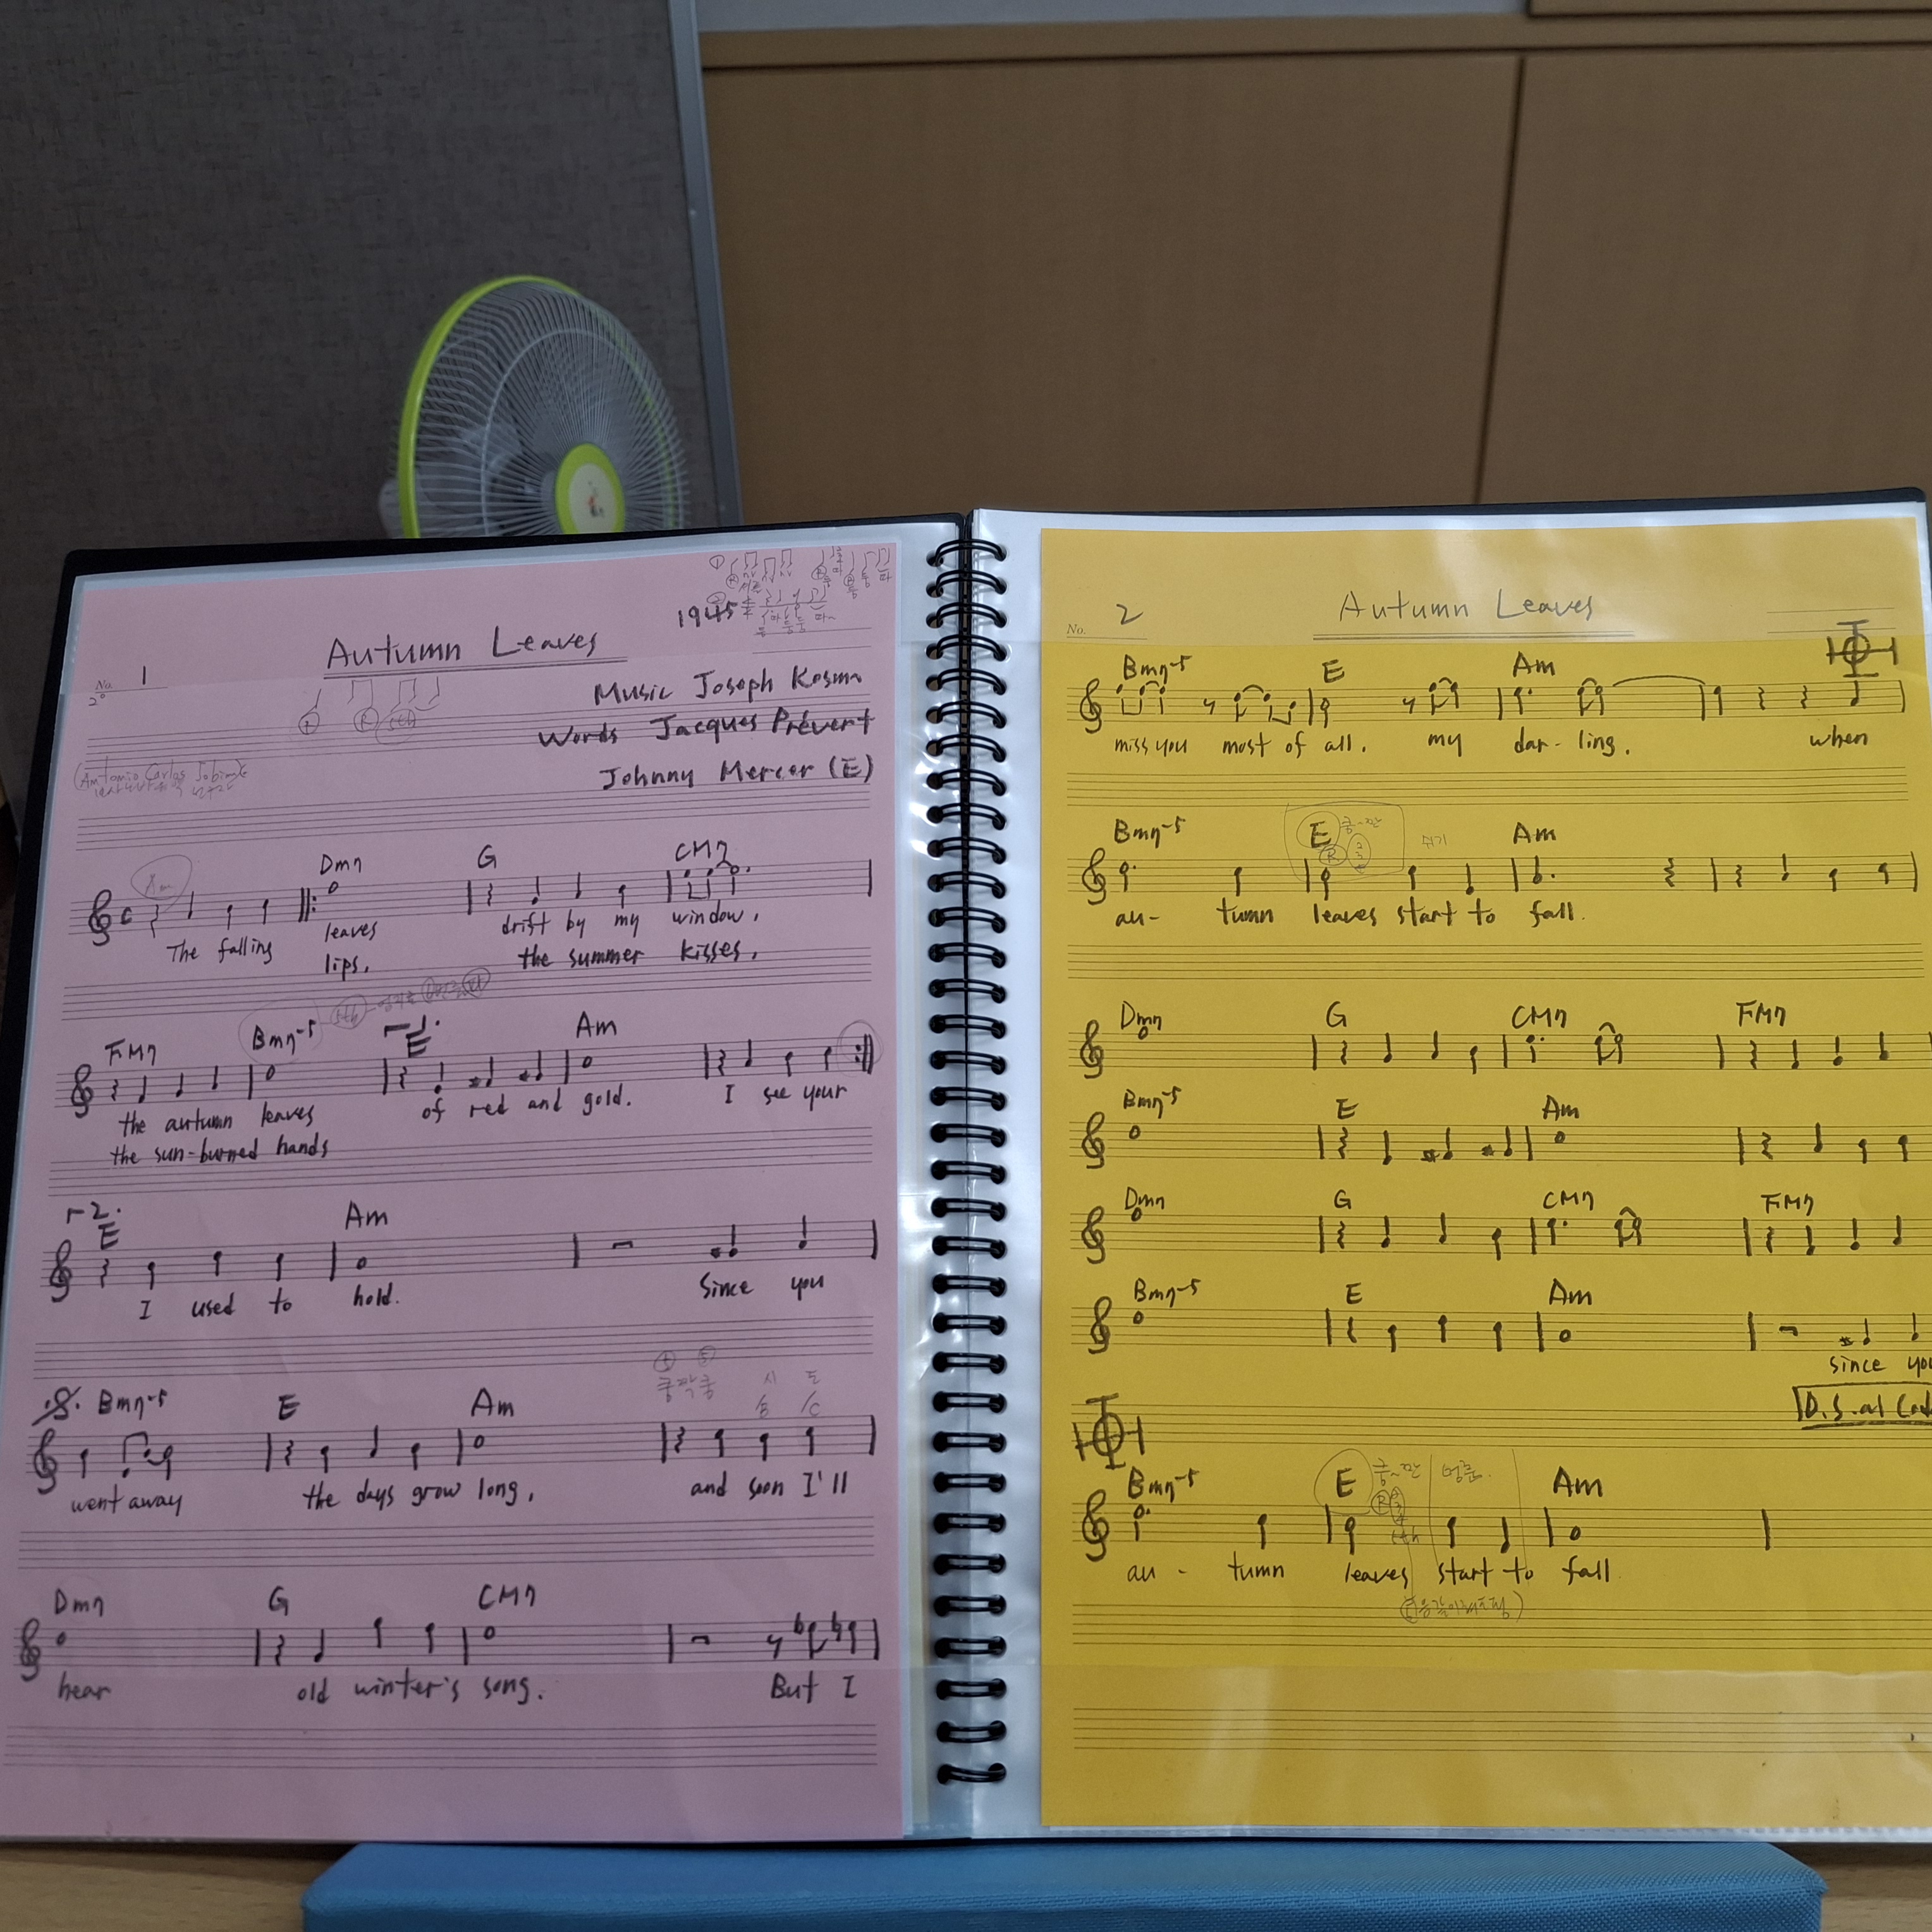 1945
Autumn Leaves
No. 1
Music Joseph Kosma
Words Jacques Prévert
Johnny Mercer (E)
(Antonio Carlos Jobim)
Am Dm7 G CM7
The falling leaves drift by my window,
lips, the summer kisses,
5th
FM7 Bm7-5 1. E Am
the autumn leaves of red and gold. I see your
the sun-burned hands
2. E Am
I used to hold. Since you
④ ⑤
쿵짝쿵 시 도
Bm7-5 E Am /B /C
went away the days grow long, and soon I'll
Dm7 G CM7
hear old winter's song. But I
No. 2 Autumn Leaves
Bm7-5 E Am
miss you most of all. my dar-ling. when
Bm7-5 E 쿵~딴 쉬기 Am
R
au- tumn leaves start to fall.
Dm7 G CM7 FM7
Bm7-5 E Am
Dm7 G CM7 FM7
Bm7-5 E Am
since you
D.S. al Coda
Bm7-5 E 쿵~딴 멈춤. Am
R
au - tumn leaves start to fall